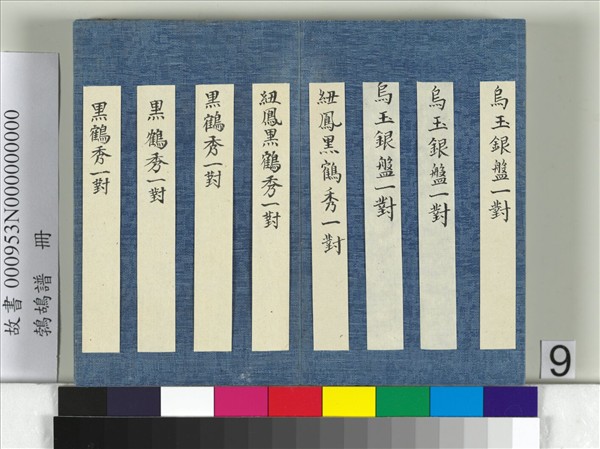 烏玉銀盤一對
烏玉銀盤一對
烏玉銀盤一對
紐鳳黑鶴秀一對
紐鳳黑鶴秀一對
黑鶴秀一對
黑鶴秀一對
黑鶴秀一對
故書 000953N000000000
鵓鴣譜 冊
9